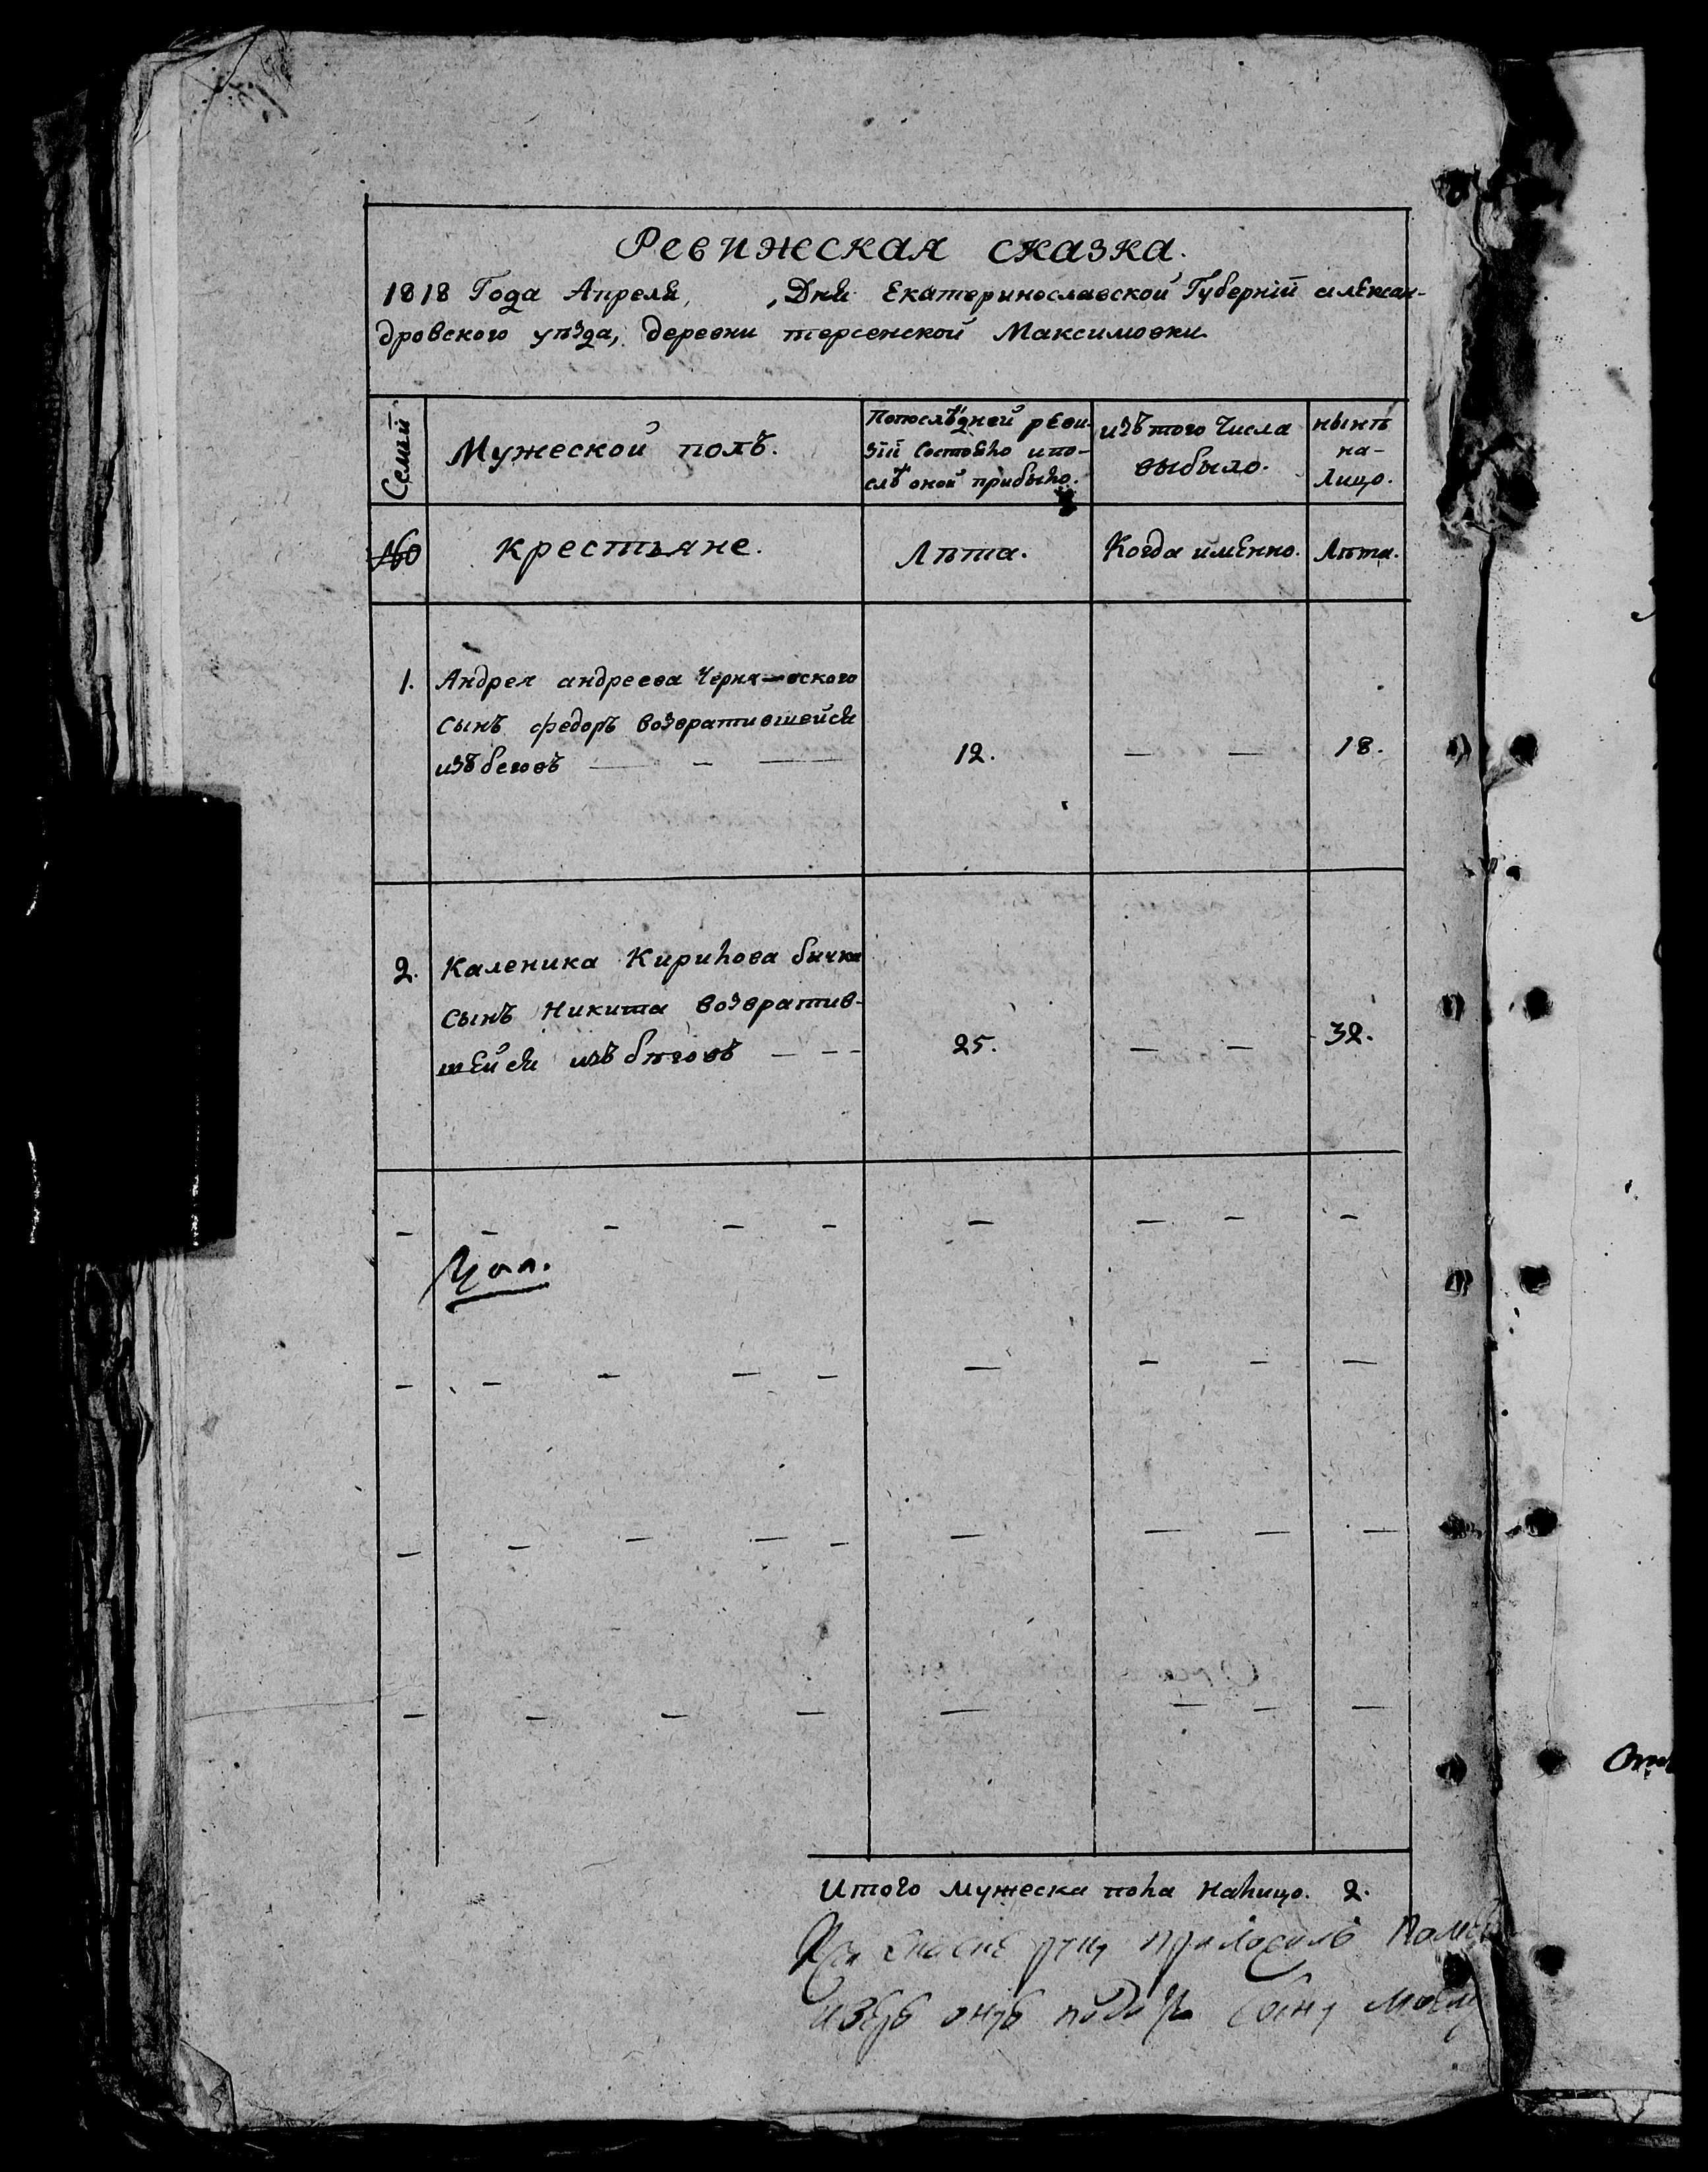 Ревижская сказка.
1818 Года Апреля, , Дня Екатеринославской Губерніи алексан-
дровского уѣзда, деревни терсенской Максимовки
Семьи
Мужеской полъ.
Попослѣдней реви-
зіи Состояло ипо-
слѣ оной прибыло.
изъ того Числа
выбыло.
нынѣ
на-
лицо.
№
крестьяне.
Лѣта.
Когда именно.
Лѣта.
1. Андрея андреева Черня-вского
сынъ федоръ возвратившейся
изъ беговъ — - — 12. — — 18.
2. Каленика Кирилова бычка
сынъ Никита возвратив-
шейся изъ бѣговъ - - - 25. — — 32.
Итого мужеска пола налицо. 2.